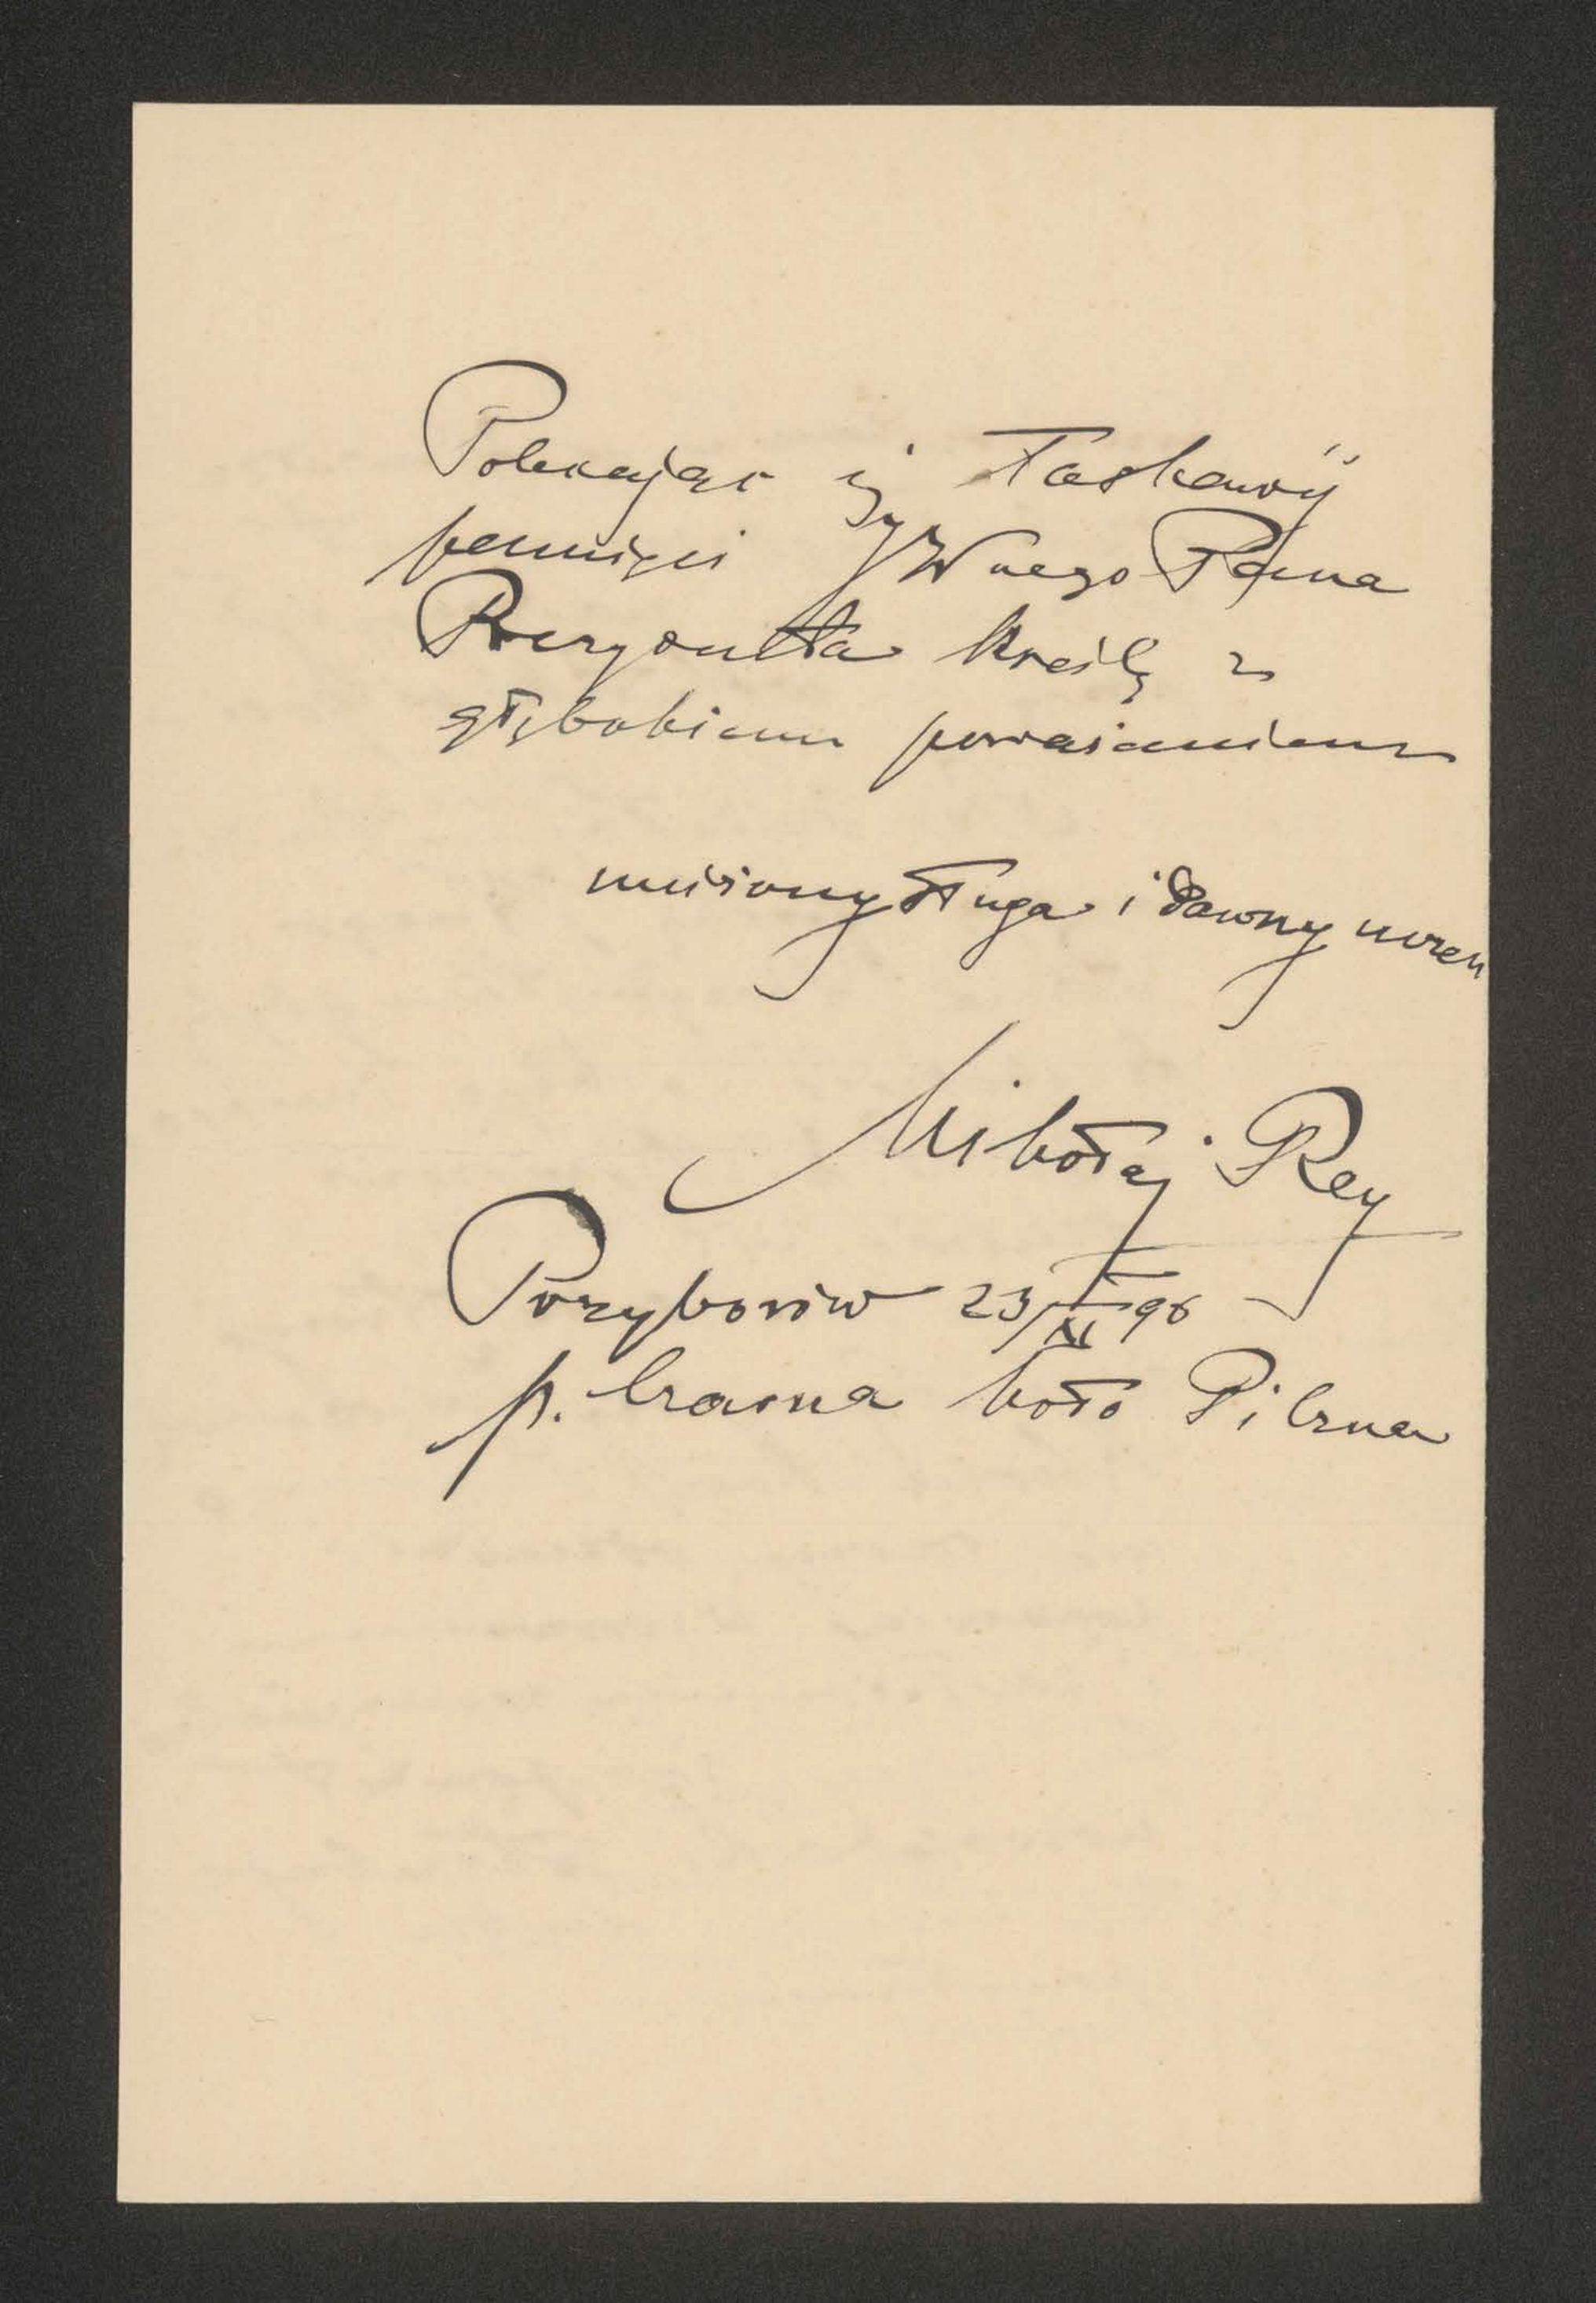 Polecając się łaskawéj
pamięci JWnego Pana
Prezydenta kreślę z
głębokiem poważaniem
uniżony sługa i dawny uczeń
Mikołaj Rey
Przyborów 23/XI 96
p. Czarna koło Pilzna